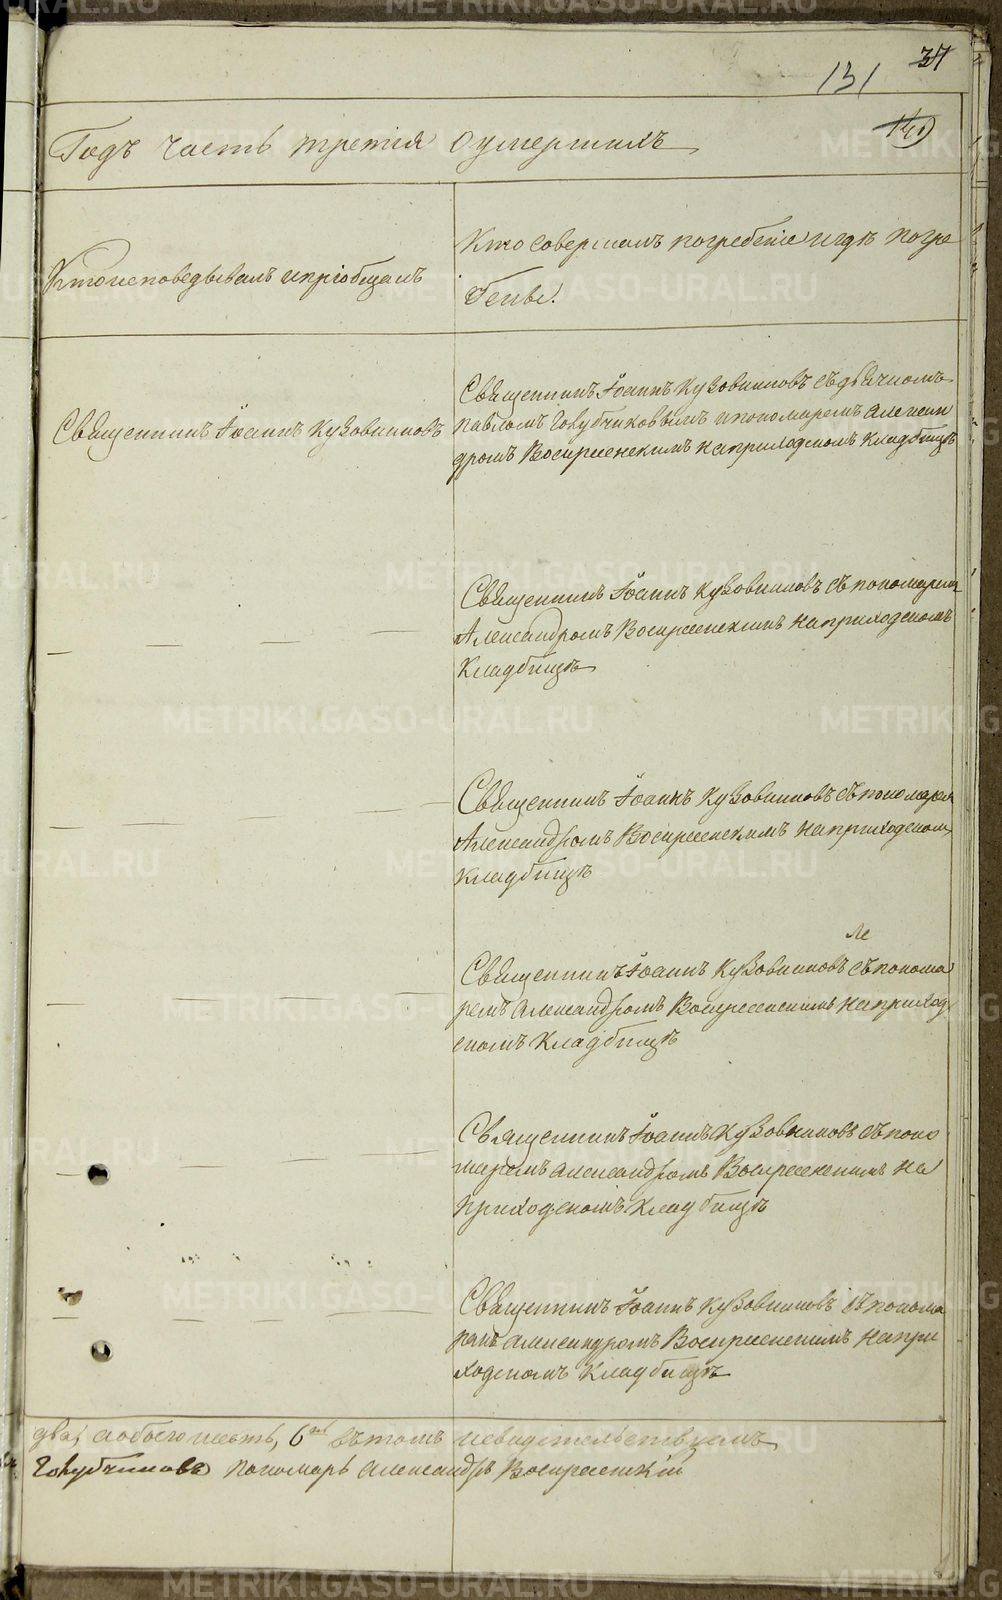 37
131
140
Годъ часть третія оумершихъ
Кто исповедывалъ и пріобщалъ
Кто совершалъ погребеніе и гдѣ погре
бены.
Священникъ Іоаннъ Кузовниковъ
Священникъ Іоаннъ Кузовниковъ съ дьячкомъ
Павломъ Голубчиковымъ и пономаремъ Алексан
дромъ Воскресенскимъ на приходскомъ кладбищѣ
Священникъ Іоаннъ Кузовниковъ съ пономаремъ
Александромъ Воскресенскимъ на приходскомъ
кладбищѣ
Священникъ Іоаннъ Кузовниковъ съ пономарем
Александромъ Воскресенскимъ на приходском
кладбищѣ
Священникъ Іоаннъ Кузовниковъ съ понома
ремъ Александромъ Воскресенскимъ на приход
скомъ кладбищѣ
Священникъ Іоаннъ Кузовниковъ съ поно
маремъ Александромъ Воскресенскимъ на
приходскомъ кладбищѣ
Священникъ Іоаннъ Кузовниковъ съ понома
ремъ Александромъ Воскресенскимъ на при
ходскомъ кладбищѣ
два, а обоего шесть, 6 въ томъ и свидѣтельствуемъ
Голубчиковъ Пономарь Александръ Воскресенскій
METRIKI.GASO-URAL.RU